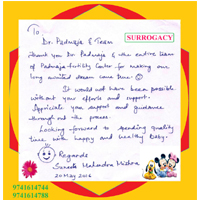 To
SURROGACY
Dr. Padmaja & Team
Thank you Dr. Padmaja & the entire team
of Padmaja fertility Center for making our
long awaited dream come true
It would not have been possible
without your efforts and support.
Appriciate your support and guidance
through out the process.
Looking forward to spending quality
time with happy and healthy Baby.
Regards
Suneeta Mahendra Mishra
20 May 2016
9741614744
9741614788